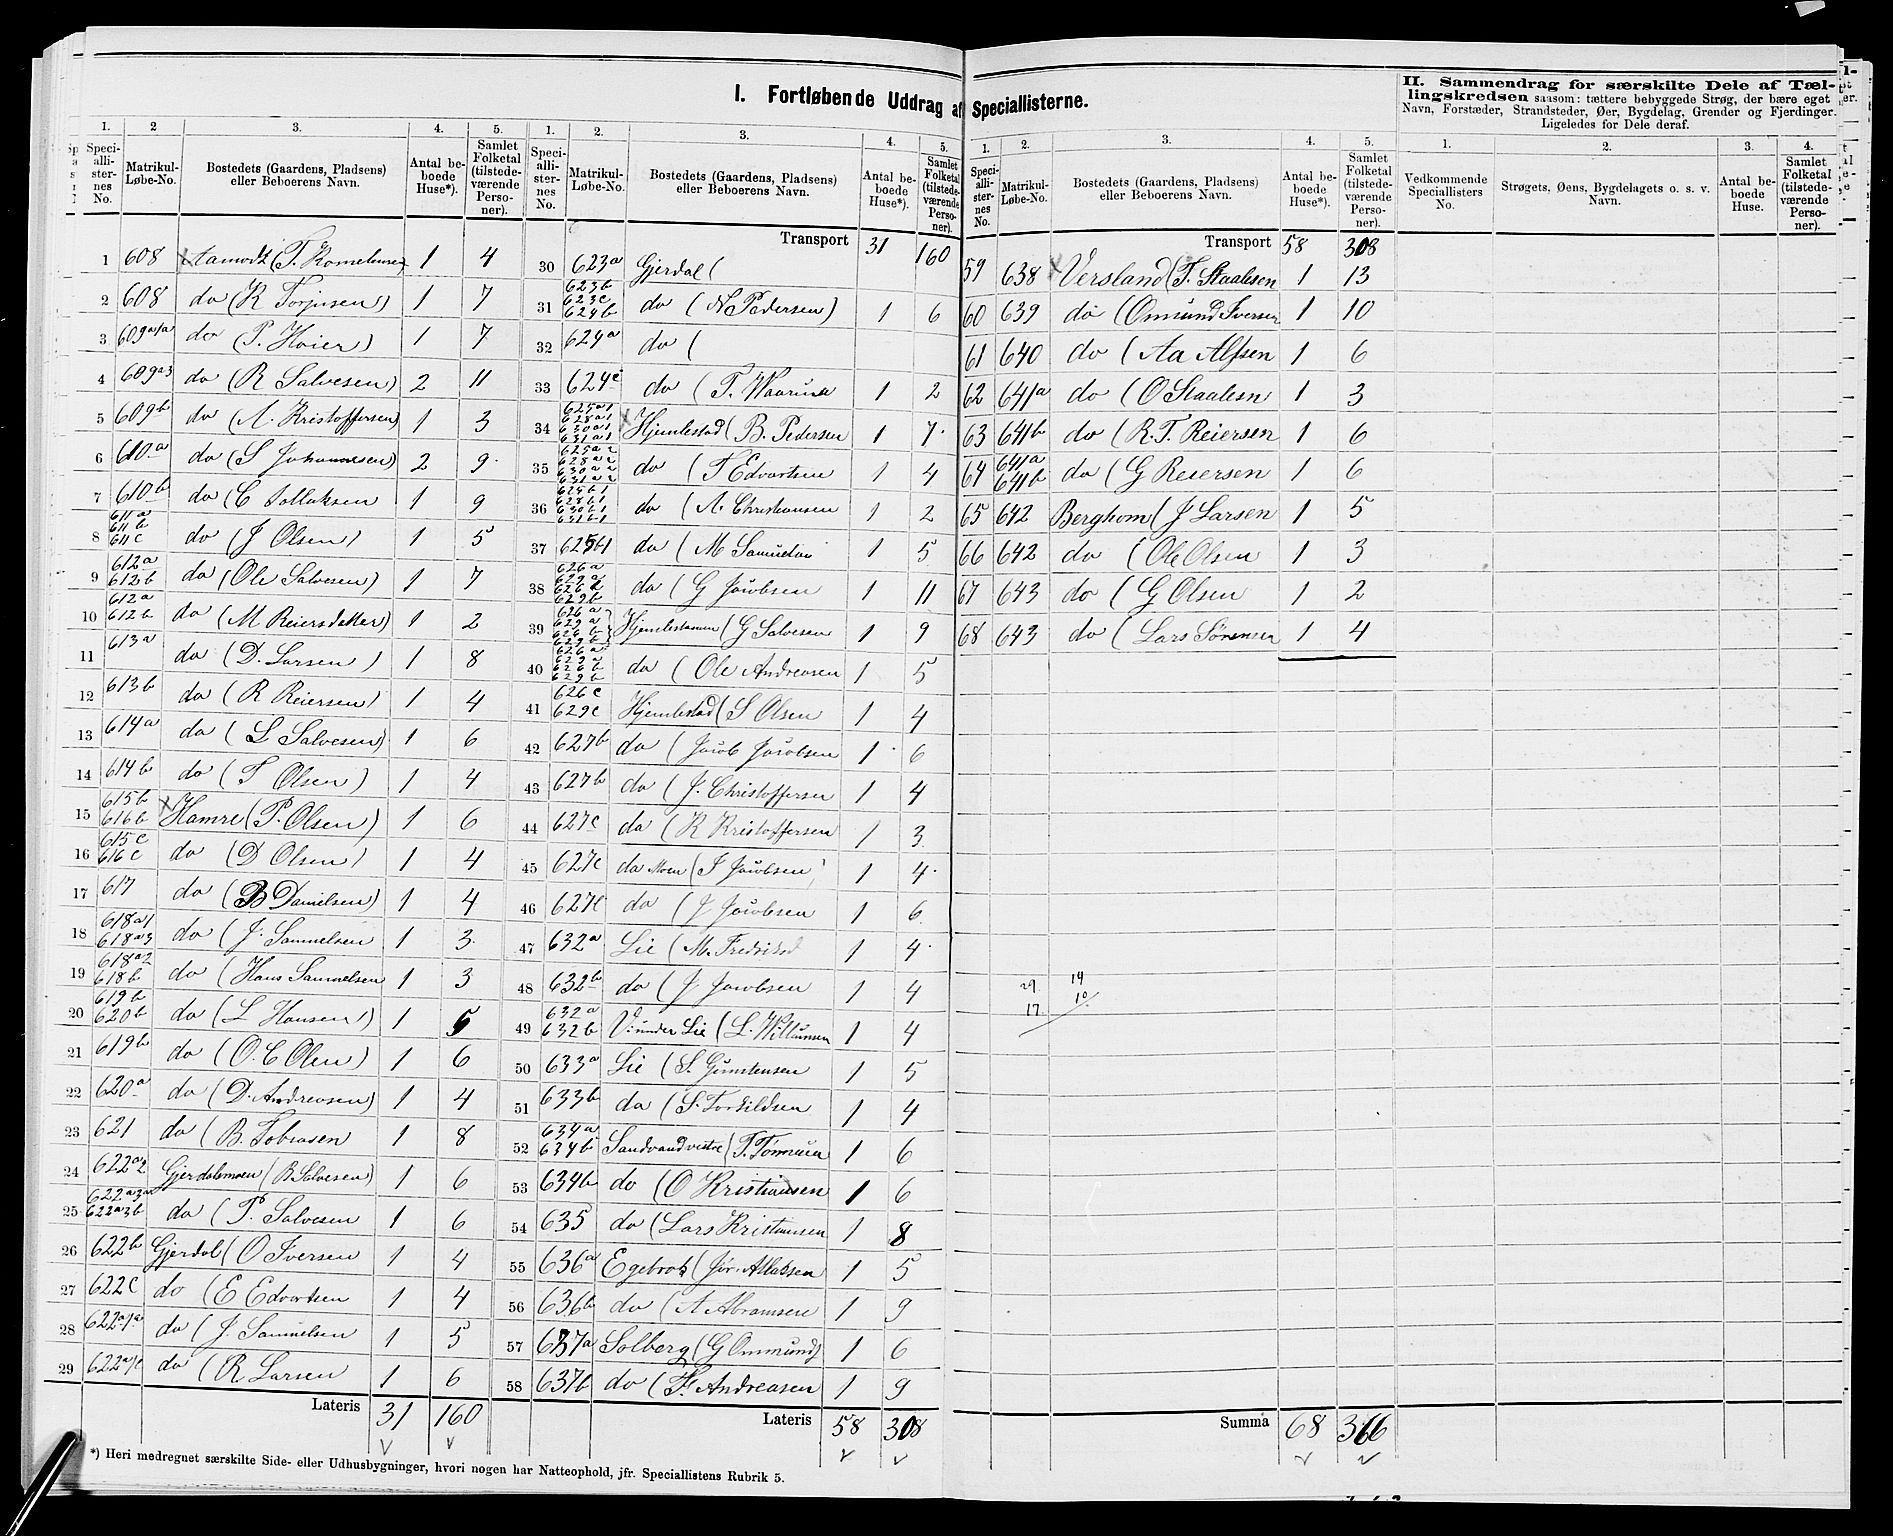 I. Fortløbende Uddrag af Speciallisterne.
II. Sammendrag for særskilte Dele af Tællingskredsen saasom: tættere bebyggede Strøg, der bære eget
Navn, Forstæder, Strandsteder, Øer, Bygdelag, Grender og Fjerdinger.
Ligeledes for Dele deraf.
1. 2 3. 4. 5.
Speciallisternes No. Matrikul-Løbe-No. Bostedets (Gaardens, Pladsens) eller Beboerens Navn. Antal beboede Huse*). Samlet Folketal (tilstedeværende Personer).
1 608 Aamodt (T. 1 4
2 608 do (K Torjusen) 1 7
3 609a1a do (P. Hoier) 1 7
4 609a3 do (R Salvesen) 2 11
5 609b do (A. Kristoffersen) 1 3
6 610a do (S Johannesen) 2 9
7 610b do (C Sollaksen 1 9
8 611a 611b 611c do (J Olsen) 1 5
9 612a 612b do (Ole Salvesen) 1 7
10 612a 612b do (M Reiersdatter) 1 2
11 613a do (D. Larsen) 1 8
12 613b do (R Reiersen) 1 4
13 614a do (L Salvesen) 1 6
14 614b do (T Olsen) 1 4
15 615b 616b Hamre (P. Olsen) 1 6
16 615c 616c do (D Olsen) 1 4
17 617 do (B Danielsen) 1 4
18 618a1 618a3 do (J. Samuelsen 1 3
19 618a2 618b do (Hans Samuelsen 1 3
20 619b 620b do (L Hansen) 1 5
21 619b do (O. C Olen) 1 6
22 620a do (D. Andreasen) 1 4
23 621 do (B. Tobiasen 1 8
24 622a2 Gjerdalsmoen (B. Salvesen) 1 6
25 622a3a 622a3b do (P. Salvesen 1 6
26 622b Gjerdal (O Iversen 1 4
27 622c do (E Edvartsen 1 4
28 622a1a do (J. Samuelsen 1 5
29 622a1c do (R Larsen 1 6
Lateris 31 160
*) Heri medregnet særskilte Side- eller Udhusbygninger, hvori nogen har Natteophold, jfr. Speciallistens Rubrik 5.
1. 2. 3. 4. 5.
Speciallisternes No. Matrikul-Løbe-No. Bostedets (Gaardens, Pladsens) eller Beboerens Navn. Antal beboede Huse*). Samlet Folketal (tilstedeværende Personer).
Transport 31 160
30 623a Gjerdal (
31 623b 623c 624b do (N Pedersen) 1 6
32 624a do (
33 624c do (T. 1 2
34 625a1 628a1 630a1 631a1 Hjemlestad (B. Pedersen 1 7
35 625a2 628a2 630a2 631a2 do (T Edvartsen 1 4
36 625b1 628b1 630b1 631b1 do (A. Christiansen 1 2
37 625b1 do (M 1 5
38 626a 629a 626b 629b do (G Jacobsen 1 11
39 626a 629a 626b 629b (G Salvesen 1 9
40 626a 629a 626b 629b do (Ole Andreasen 1 5
41 626c 629c Hjemlestad (S Olsen 1 4
42 627b do (Jacob Jacobsen 1 6
43 627b do (J. Christoffersen 1 4
44 627c do (K Kristoffersen 1 3
45 627c do Moen (T Jacobsen) 1 4
46 627c do (J Jacobsen 1 6
47 632a Lie (M. 1 4
48 632b do (J Jacobsen 1 4
49 632a 632b V: under Lie (L. 1 4
50 633a Lie (S. Gunstensen 1 5
51 633b do (S. Torkildsen 1 4
52 634a 634b Sandvandvestre (T. 1 6
53 634b do (O Kristiansen 1 6
54 635 do (Lars Kristiansen 1 8
55 636a Egebrok (Jör. Allaksen 1 5
56 636b do (A Abramsen 1 9
57 637a Solberg (G Ommund) 1 6
58 637b do (F. Andreasen 1 9
Lateris 58 308
1. 2. 3. 4. 5.
Speciallisternes No. Matrikul-Løbe-No. Bostedets (Gaardens, Pladsens) eller Beboerens Navn. Antal beboede Huse*). Samlet Folketal (tilstedeværende Personer).
Transport 58 308
59 638 Versland (T. Staalesen 1 13
60 639 do (Omund Iversen 1 10
61 640 do (Aa Alfsen 1 6
62 641a do (O Staalesn 1 3
63 641b do (R. T. Reiersen 1 6
64 641a 641b do (G Reiersen 1 6
65 642 Berghom (J Larsen 1 5
66 642 do (Ole Olsen 1 3
67 643 do (G Olsen 1 2
68 643 do (Lars Sørensen 1 4
29 14
17 10
Summa 68 366
1. 2. 3. 4.
Vedkommende Speciallisters No. Strøgets, Øens, Bygdelagets o. s. v. Navn. Antal beboede Huse. Samlet Folketal (tilstedeværende Personer).